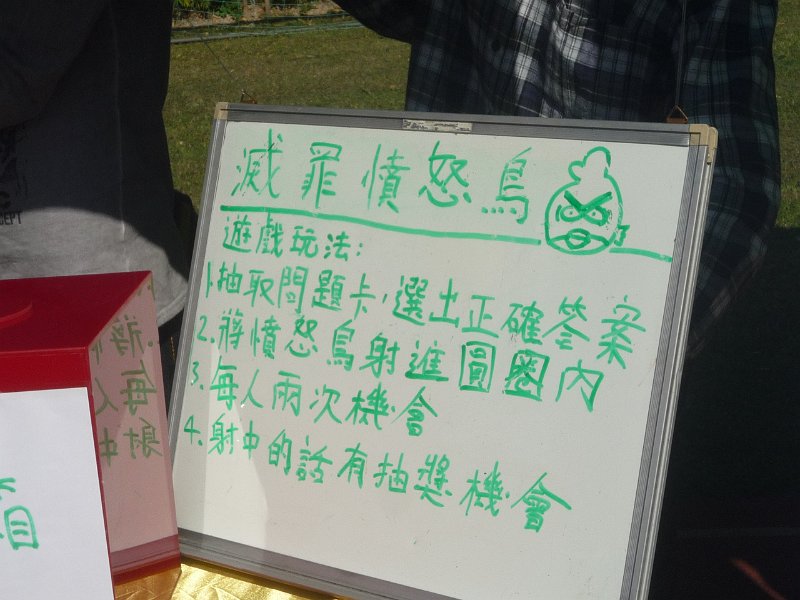 滅罪憤怒鳥
遊戲玩法:
1.抽取問題卡,選出正確答案
2.將憤怒鳥射進圓圈內
3.每人兩次機會
4.射中的話有抽獎機會